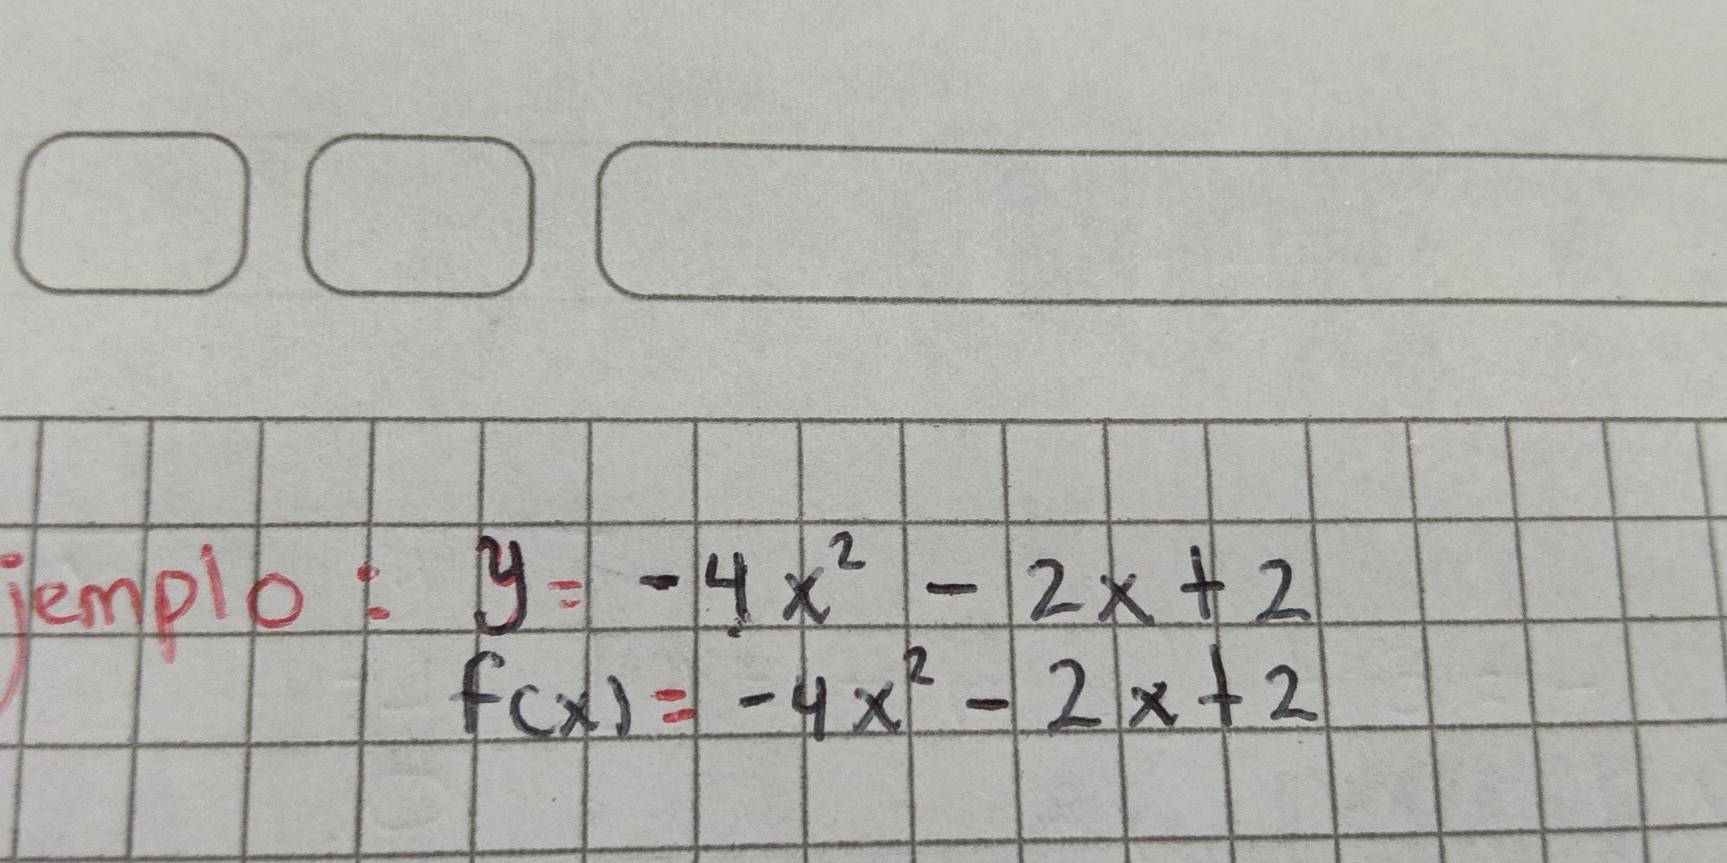 jemplo: y = -4x² - 2x + 2
f(x) = -4x² - 2x + 2